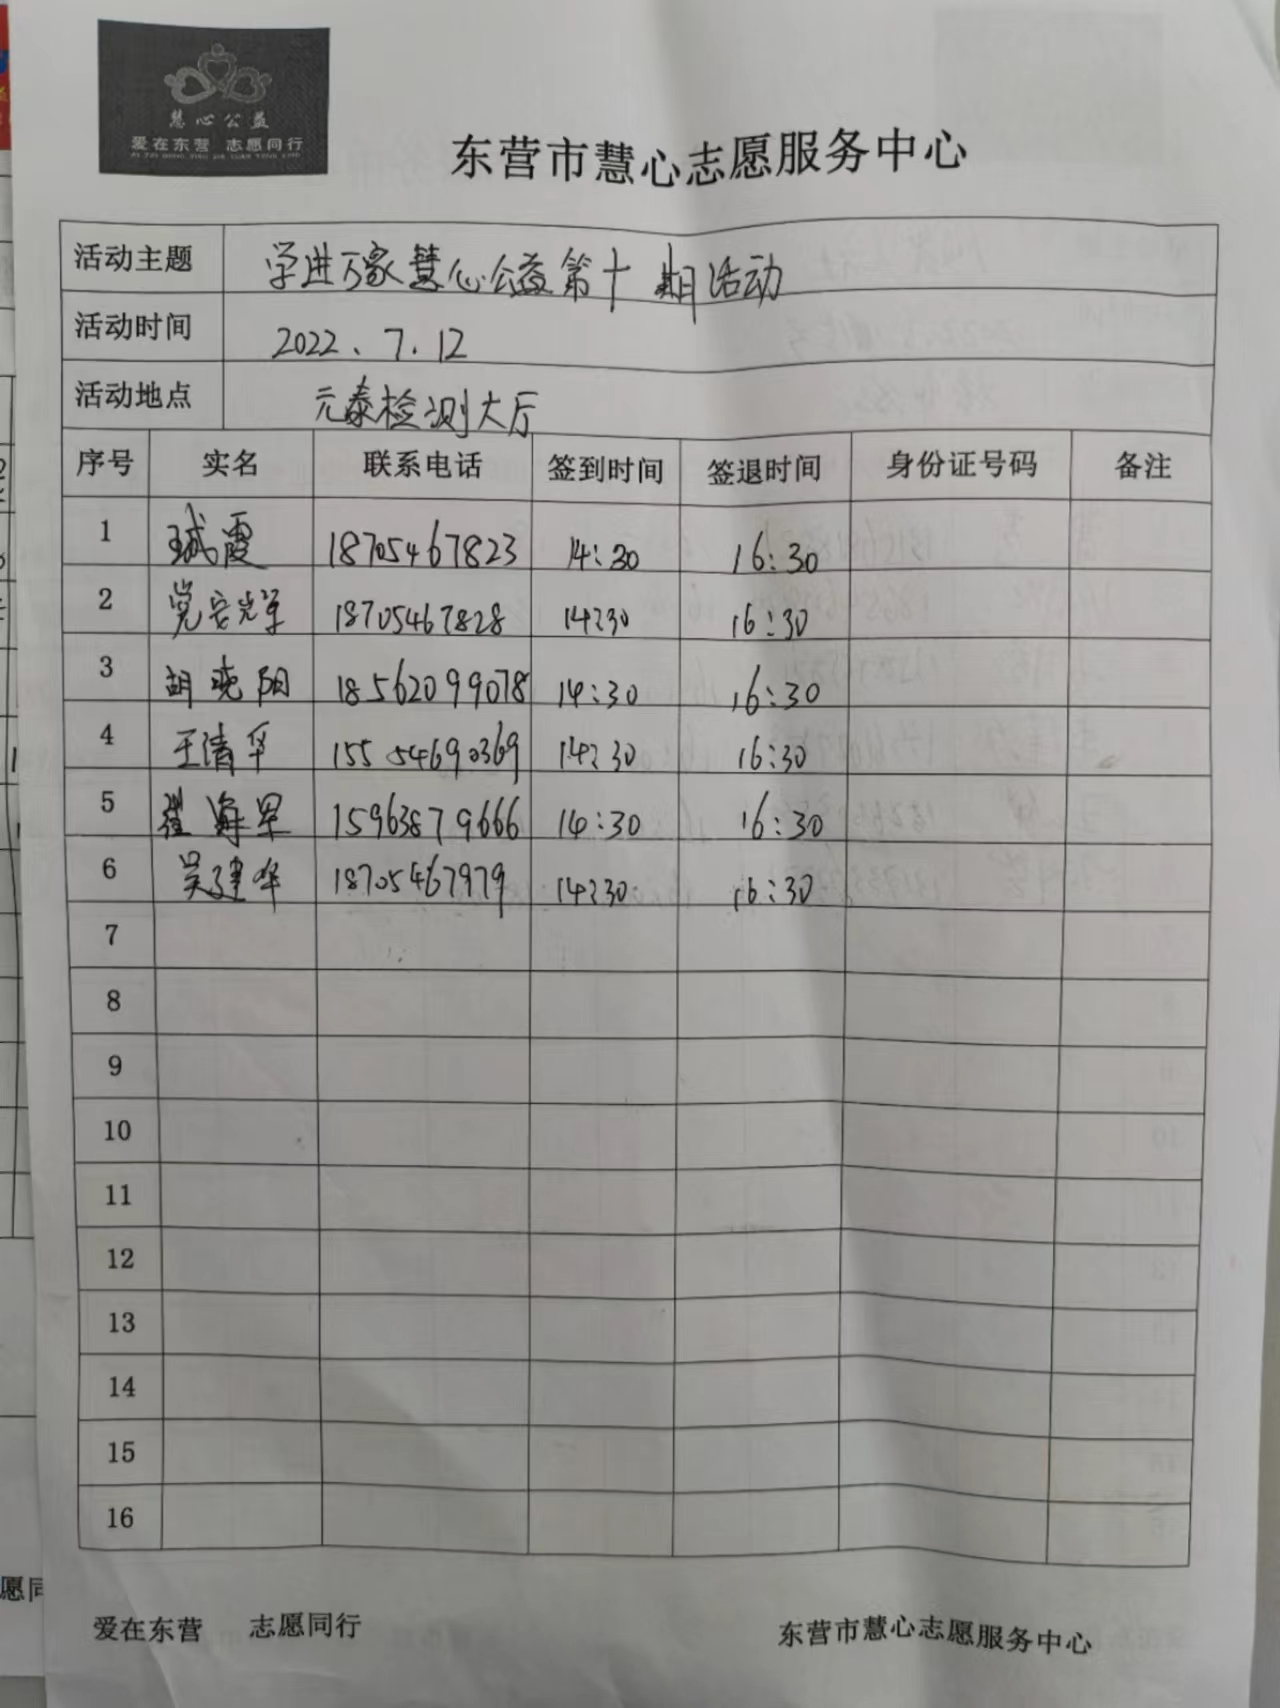 慧心公益
爱在东营 志愿同行
东营市慧心志愿服务中心
活动主题 学进万家慧心公益第十期活动
活动时间 2022.7.12
活动地点 元泰检测大厅
序号 实名 联系电话 签到时间 签退时间 身份证号码 备注
1 霞 18705467823 14:30 16:30
2 18705467828 14:30 16:30
3 胡晓阳 18562099078 14:30 16:30
4 王清华 15554690369 14:30 16:30
5 崔海军 15963879666 14:30 16:30
6 吴建华 18705467979 14:30 16:30
7
8
9
10
11
12
13
14
15
16
爱在东营 志愿同行 东营市慧心志愿服务中心
愿同